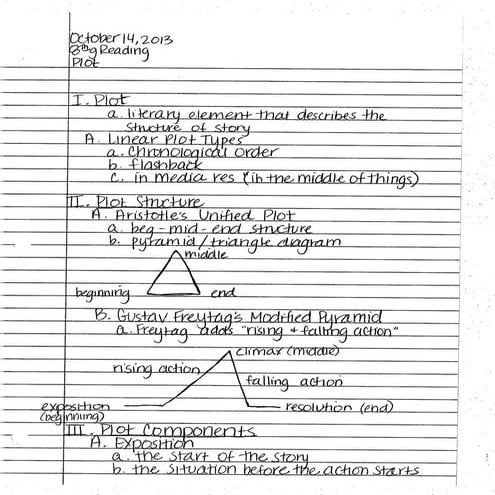 October 14, 2013
8th g Reading
Plot
I. Plot
a. literary element that describes the
structure of story
A. Linear Plot Types
a. Chronological order
b. flashback
c. in media res (in the middle of things)
II. Plot Structure
A. Aristotle's Unified Plot
a. beg-mid-end structure
b. pyramid/triangle diagram
middle
beginning end
B. Gustav Freytag's Modified Pyramid
a. Freytag adds "rising + falling action"
climax (middle)
rising action
falling action
exposition
(beginning)
resolution (end)
III. Plot Components
A. Exposition
a. the start of the story
b. the situation before the action starts